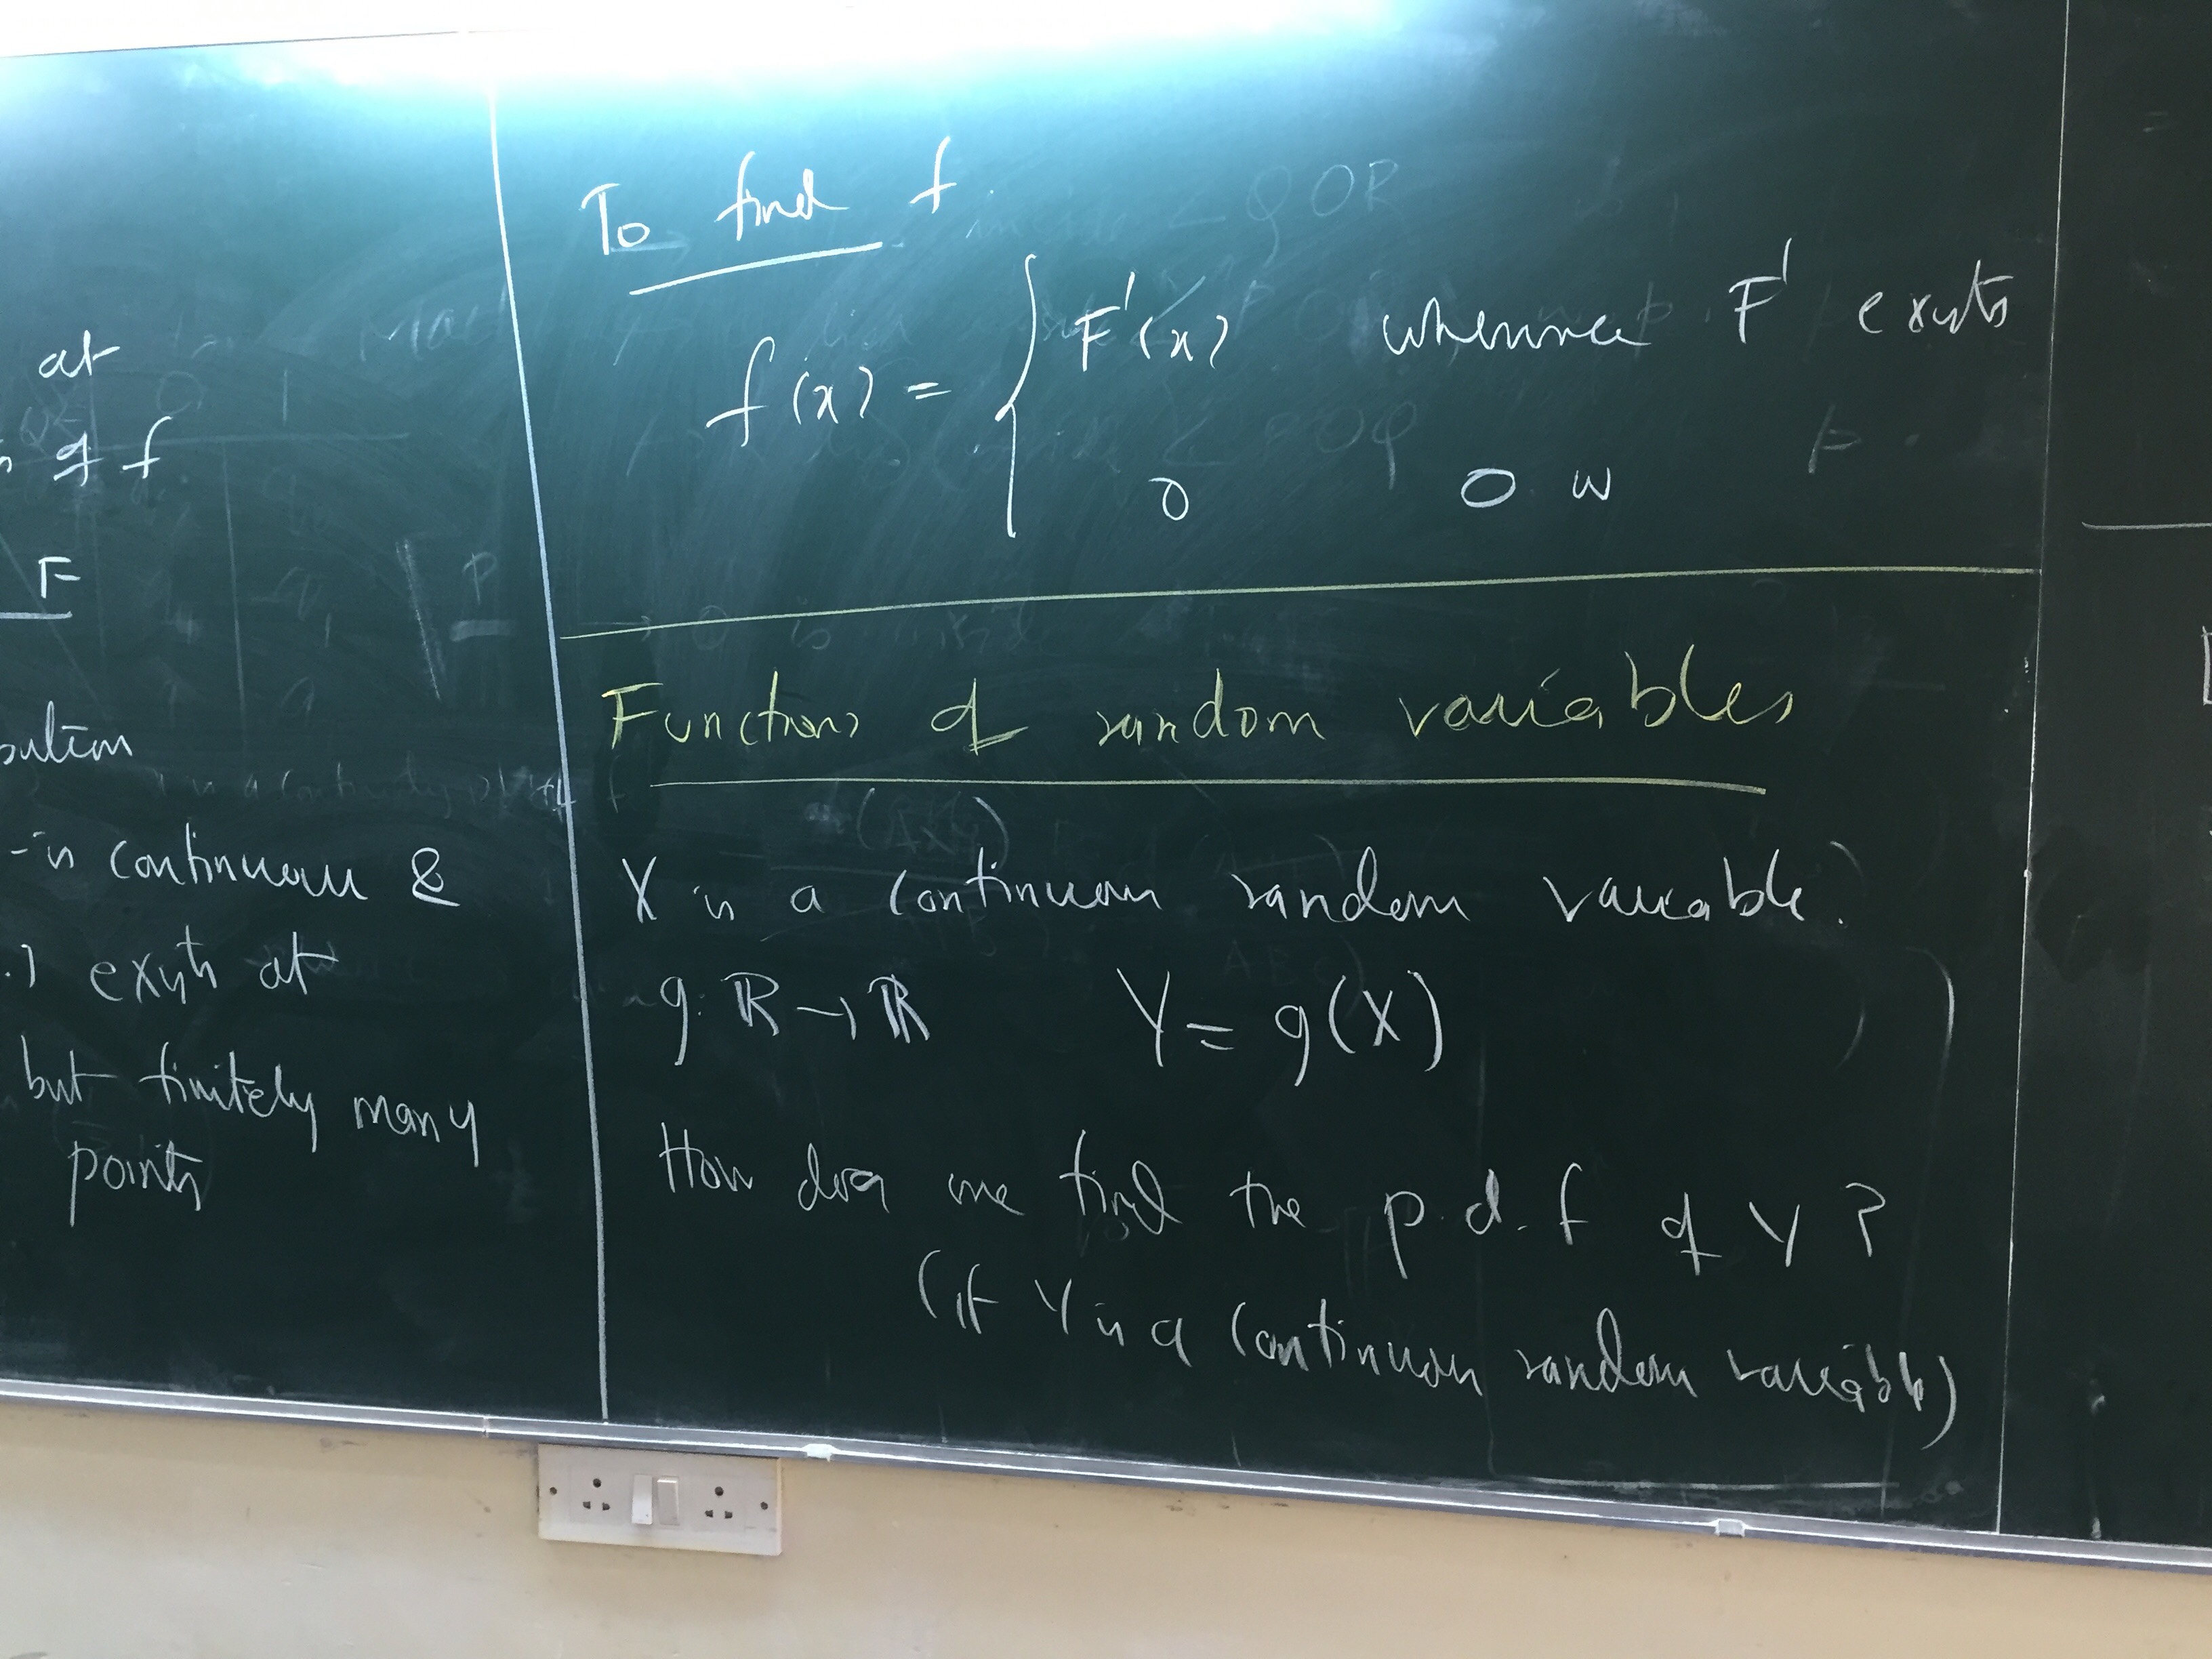 at
of f
F
is continuous &
exists at
but finitely many
points
To find f
f(x) = { F'(x) whenever F' exists
0 O W
Functions of random variables
X is a continuous random variable.
g: ℝ → ℝ Y = g(X)
How does one find the p.d.f of Y ?
(if Y is a continuous random variable)